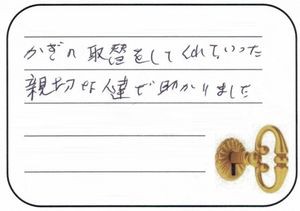 かぎの取替をしてくれていった
親切な人達で助かりました